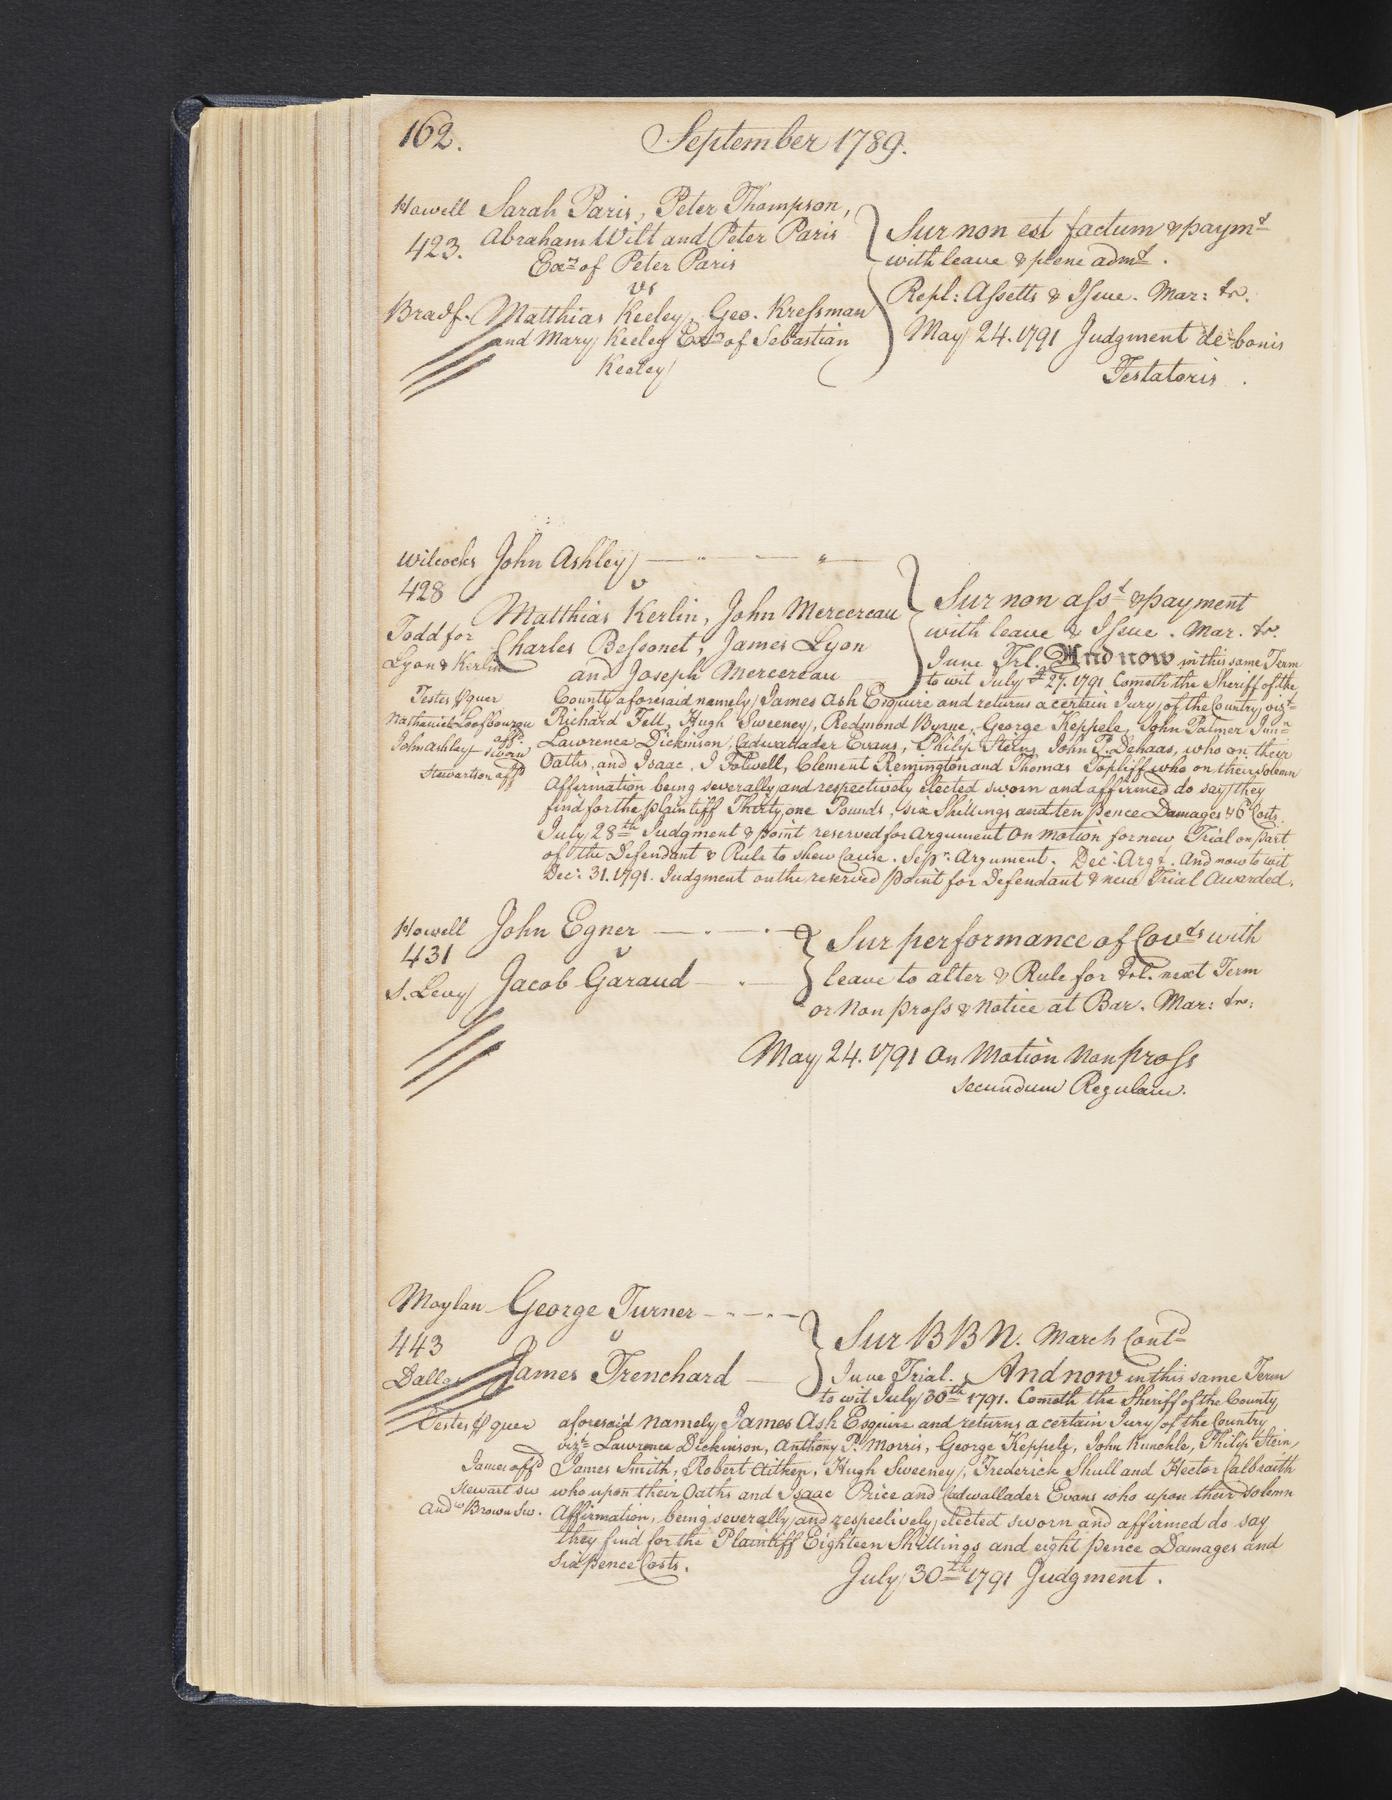 162.
September 1789.
Howell Sarah Paris, Peter Thompson,
423. Abraham Wilt and Peter Paris
Exrs of Peter Paris
vs
Bradf. Matthias Keeley, Geo. Kressman
and Mary Keeley Exrs of Sebastian
Keeley
Sur non est factum & paymt
with leave & plene admt.
Repl: Assetts & Issue. Mar: tr.
May 24. 1791 Judgment de bonis
Testatoris.
Wilcocks John Ashley
428 v
Todd for
Lyon & Kerlin
Matthias Kerlin, John Mercereau
Charles Bessonet, James Lyon
and Joseph Mercereau
Sur non asst & payment
with leave & Issue. Mar. tr.
June Trl. And now in this same Term
to wit July 27. 1791 Cometh the Sheriff of the
Testes p quer
Nathaniel
aff.
John Ashley sworn
Stewartson affd
County aforesaid namely James Ash Esquire and returns a certain Jury of the Country vizt
Richard Fell, Hugh Sweeney, Redmond Byrne, George Keppele, John Palmer Junr
Lawrence Dickinson, Cadwallader Evans, Philip Stein, John P. Dehaas, who on their
Oaths, and Isaac. I Folwell, Clement Remington and Thomas Topliff who on their solemn
Affirmation being severally and respectively elected sworn and affirmed do say they
find for the plaintiff Thirty one Pounds, six Shillings and ten pence Damages & 6d Costs.
July 28th Judgment & point reserved for Argument On Motion for new Trial on part
of the Defendant & Rule to shew Cause. Sepr. Argument. Dec: Argt. And now to wit
Decr. 31. 1791. Judgment on the reserved point for Defendant & new Trial Awarded.
Howell John Egner
431 v
S. Levy Jacob Garaud
Sur performance of Covts with
leave to alter & Rule for trl. next Term
or Non pross & notice at Bar. Mar: tr:
May 24. 1791 On Motion Non pross
secundum Regulam.
Moylan George Turner
443 v
Dallas James Trenchard
Sur B B N. March Contd
June Trial. And now in this same Term
to wit July 30th 1791. Cometh the Sheriff of the County
Testes p quer
James affd
Stewart sw
Andw Brown Sw.
aforesaid namely James Ash Esquire and returns a certain Jury of the Country
vizt Lawrence Dickinson, Anthony P. Morris, George Keppele, John Kunchle, Philip Stein,
James Smith, Robert Aitken, Hugh Sweeney, Frederick Shull and Hector Calbraith
who upon their Oaths and Isaac Price and Cadwallader Evans who upon their solemn
Affirmation, being severally and respectively elected sworn and affirmed do say
they find for the Plaintiff Eighteen Shillings and eight pence Damages and
Six pence Costs.
July 30th 1791 Judgment.